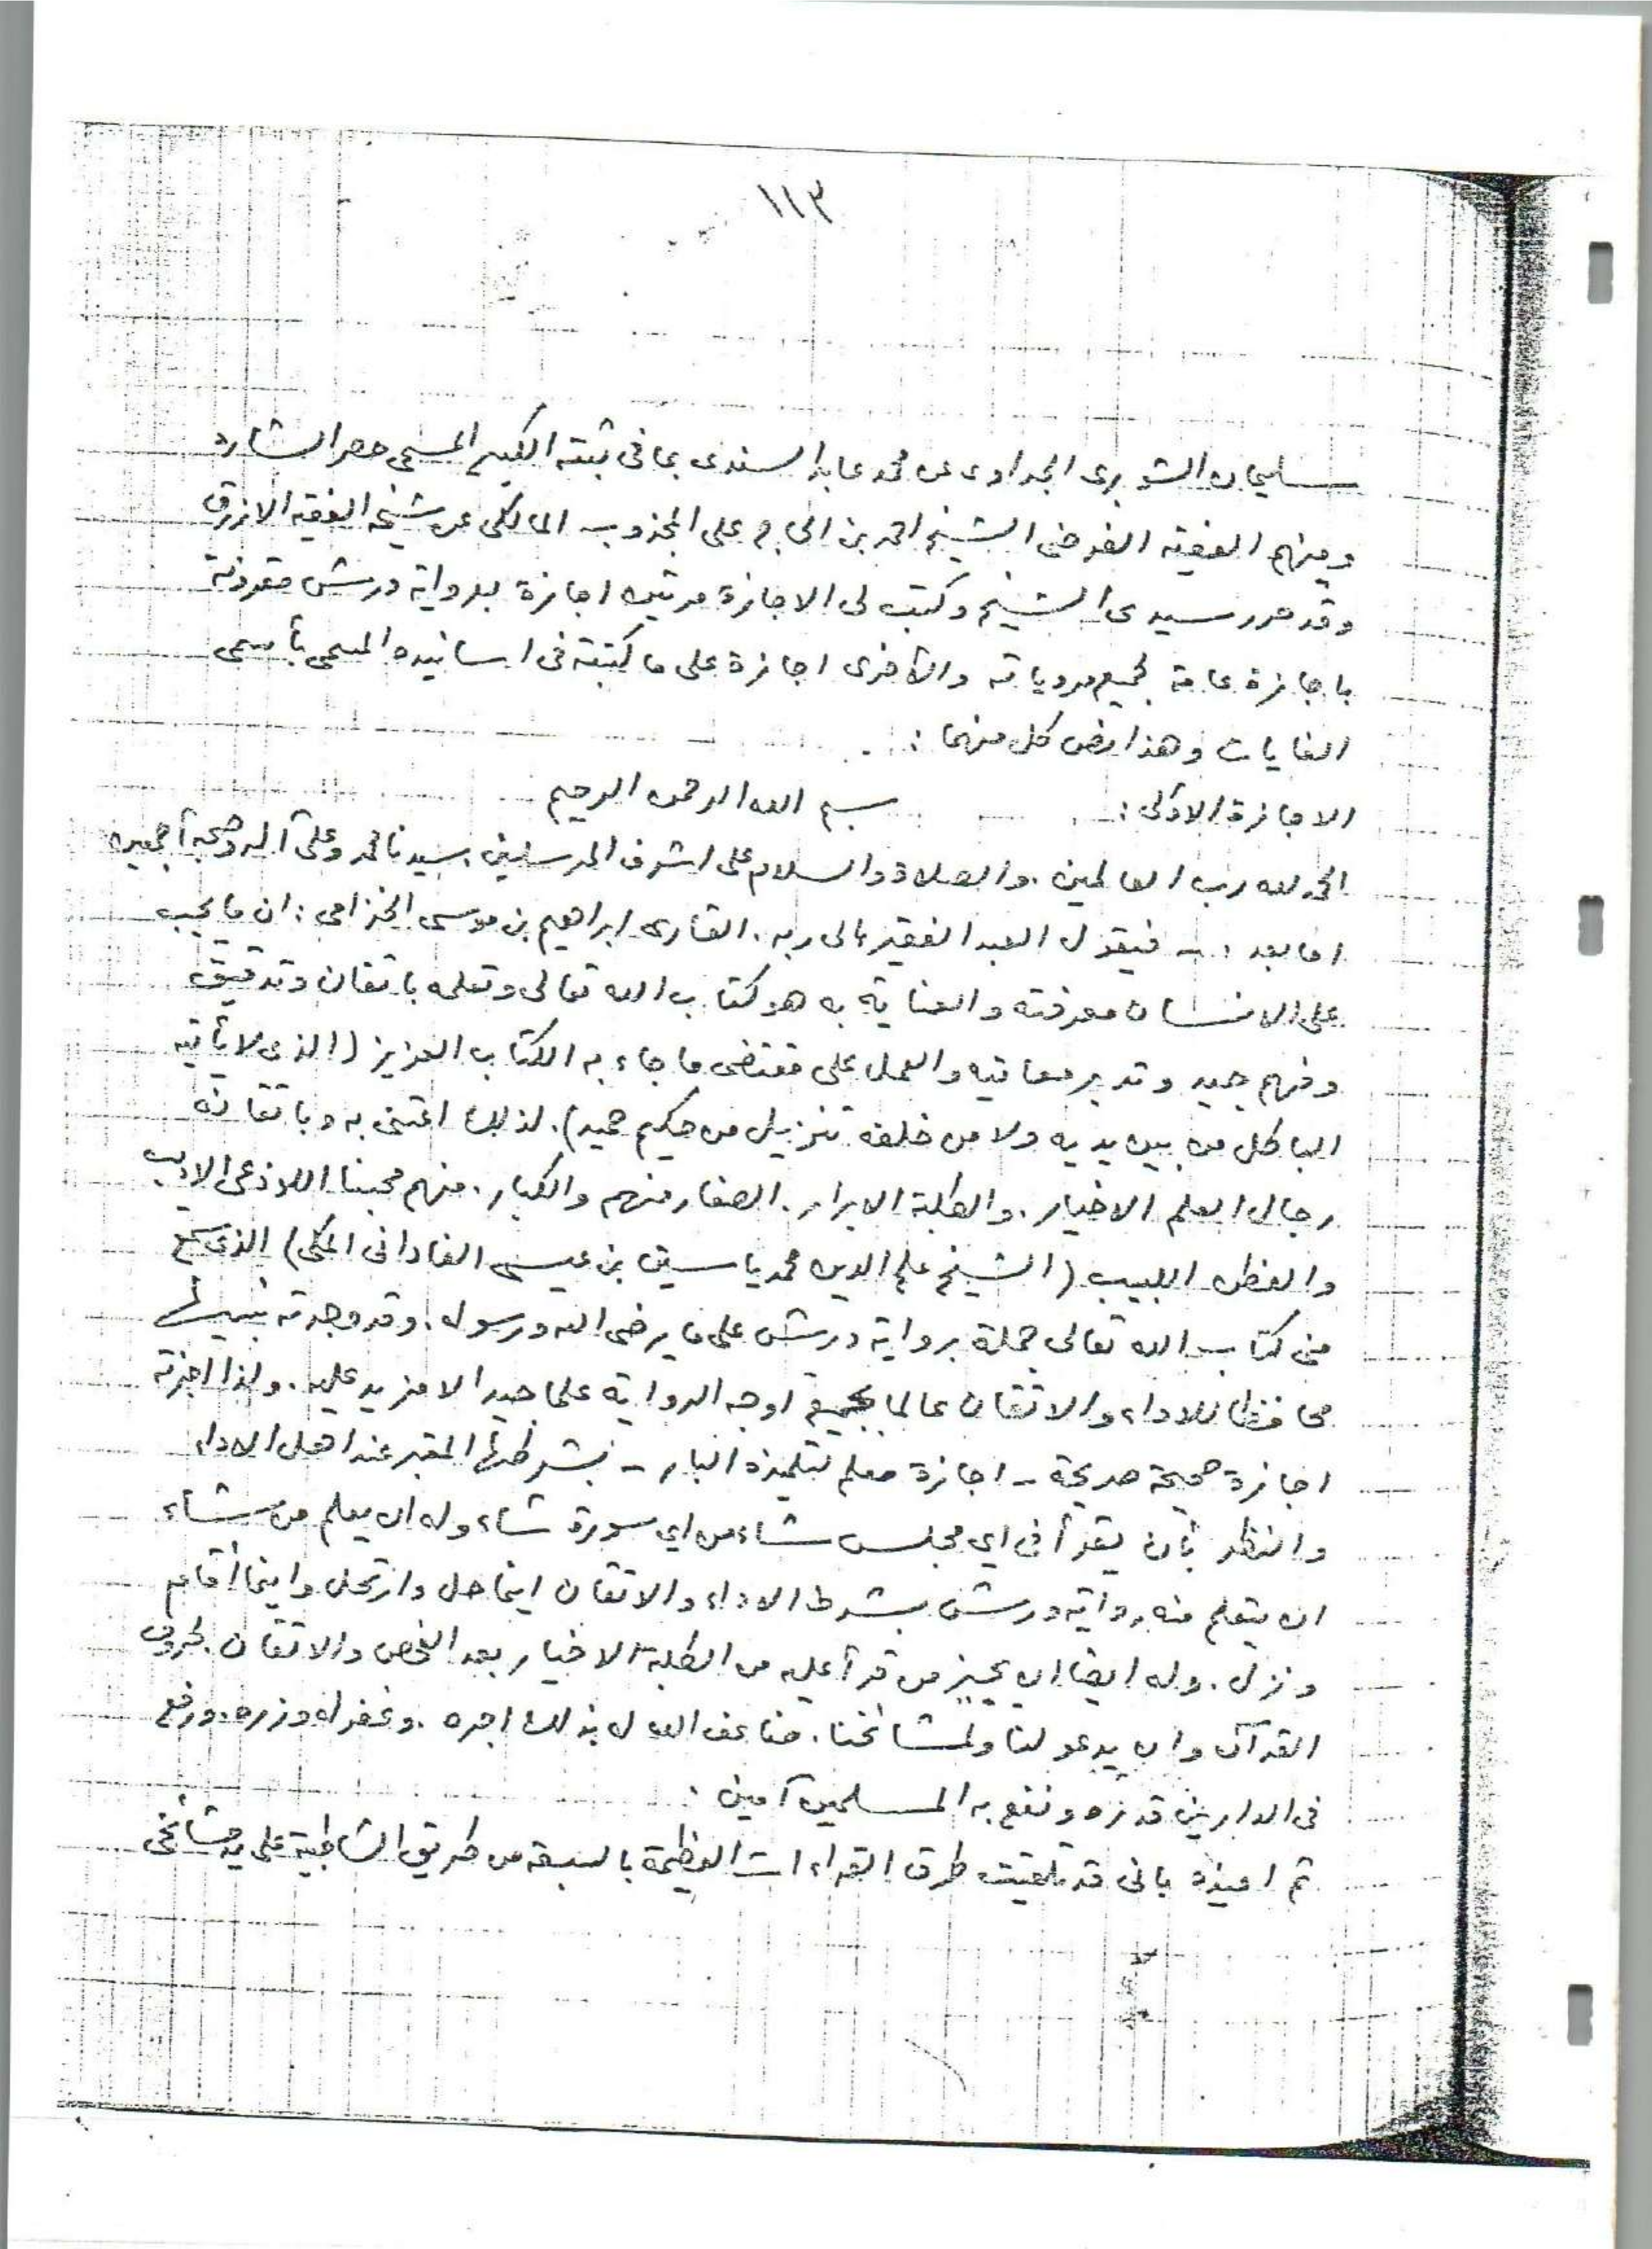 ١١٣
سليمان الشوبرى الجداوى عن محمد عابد السندى بما فى ثبته الكبير المسمى حصر الشارد
ومنهم الفقيه الفرضى الشيخ احمد بن الحاج على المجذوب المالكى عن شيخه الفقيه الازرق
وقد حرر سيدى الشيخ وكتب لى الاجازة مرتين اجازة برواية ورش مقرونة
باجازة عامة لجميع مروياته والأخرى اجازة على ما كتبته فى اسانيده المسمى بأسمى
الغايات وهذا نص كل منهما :
الاجازة الأولى : بسم الله الرحمن الرحيم
الحمد لله رب العالمين . والصلاة والسلام على اشرف المرسلين . سيدنا محمد وعلى آله وصحبه أجمعين
اما بعد : ـ فيقول العبد الفقير الى ربه . القارى ابراهيم بن موسى الخزامى : ان ما يجب
على الانسان معرفته والعناية به هو كتاب الله تعالى وتعلمه باتقان وتدقيق
وفهم جيد وتدبر معانيه والعمل على مقتضى ما جاء به الكتاب العزيز (الذى لا يأتيه
الباطل من بين يديه ولا من خلفه تنزيل من حكيم حميد) . لذلك اعتنى به وباتقانه
رجال العلم الاخيار . والطلبة الابرار . الصغار منهم والكبار . منهم محبنا اللوذعى الاديب
والفطن اللبيب (الشيخ علم الدين محمد ياسين بن عيسى الفادانى المكى) الذى سمع
منى كتاب الله تعالى جملة برواية ورش على ما يرضى الله ورسوله . وقد وجدته نبيها
محافظا للاداء والاتقان عالما بجميع اوجه الرواية علما جيدا لا مزيد عليه . ولذا اجزته
اجازة صحيحة صريحة ـ اجازة معلم لتلميذه البار ـ بشرطها المعتبر عند اهل الاداء
والنظر بأن يقرأ فى اي مجلس شاء من اي سورة شاء وله ان يعلم من شاء
ان يتعلم منه رواية ورش بشرط الاداء والاتقان اينما حل وارتحل واينما أقام
ونزل . وله ايضا ان يجيز من قرأ عليه من الطلبة الاخيار بعد الفحص والاتقان لحروف
القرآن وان يدعو لنا ولمشائخنا . ضاعف الله له بذلك اجره . وغفر له وزره . ورفع
فى الدارين قدره ونفع به المسلمين آمين .
ثم اعيذه بانى قد تلقيت طرق القراءات العظيمة بالسبعة من طريق الشاطبية على يد مشائخى